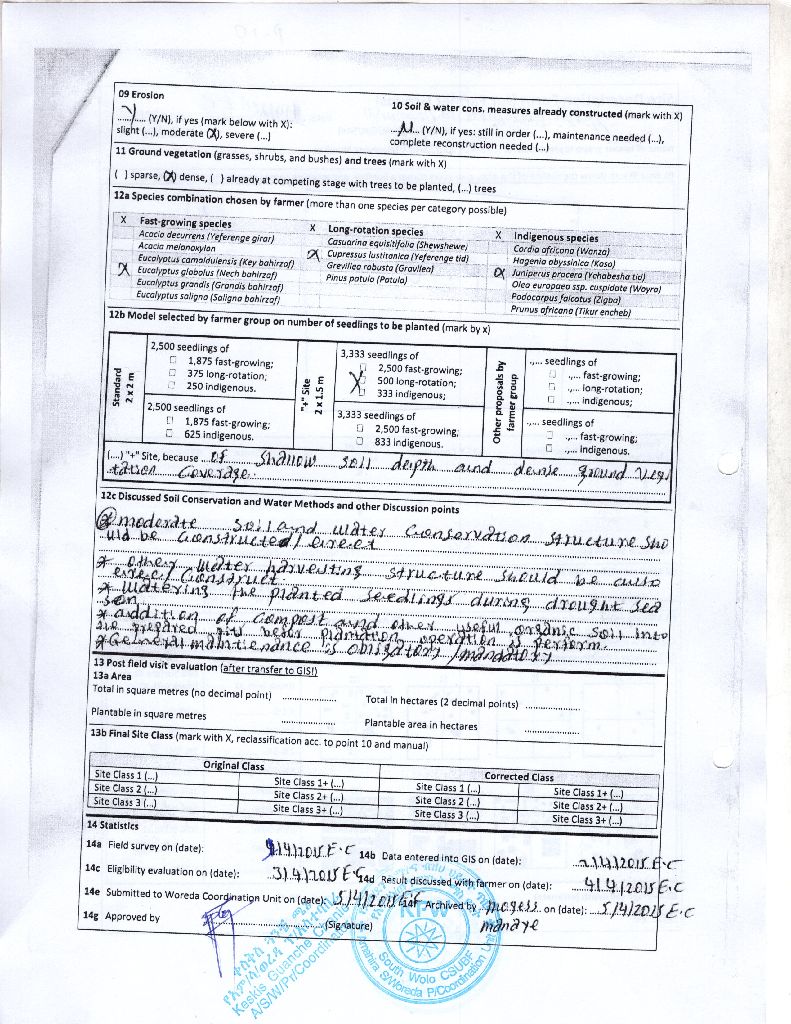 09 Erosion
Y (Y/N), if yes (mark below with X):
slight (...), moderate (X), severe (...)
10 Soil & water cons. measures already constructed (mark with X)
N (Y/N), if yes: still in order (...), maintenance needed (...),
complete reconstruction needed (...)
11 Ground vegetation (grasses, shrubs, and bushes) and trees (mark with X)
( ) sparse, (X) dense, ( ) already at competing stage with trees to be planted, (...) trees
12a Species combination chosen by farmer (more than one species per category possible)
X Fast-growing species
Acacia decurrens (Yeferenge girar)
Acacia melonoxylon
Eucalyptus camaldulensis (Key bahirzaf)
X Eucalyptus globolus (Nech bahirzaf)
Eucalyptus grandis (Grandis bahirzaf)
Eucalyptus saligna (Saligna bahirzaf)
X Long-rotation species
Casuarina equisitifolia (Shewshewe)
X Cupressus lustitanica (Yeferenge tid)
Grevillea robusta (Gravilea)
Pinus patula (Patula)
X Indigenous species
Cordia africana (Wanza)
Hagenia abyssinica (Koso)
X Juniperus procera (Yehabesha tid)
Olea europaea ssp. cuspidate (Woyra)
Podocarpus falcatus (Zigba)
Prunus africana (Tikur encheb)
12b Model selected by farmer group on number of seedlings to be planted (mark by x)
Standard
2 x 2 m
2,500 seedlings of
1,875 fast-growing;
375 long-rotation;
250 indigenous.
2,500 seedlings of
1,875 fast-growing;
625 indigenous.
"+" Site
2 x 1.5 m
3,333 seedlings of
2,500 fast-growing;
X 500 long-rotation;
333 indigenous;
3,333 seedlings of
2,500 fast-growing;
833 indigenous.
Other proposals by
farmer group
.,... seedlings of
.,... fast-growing;
.,... long-rotation;
.,... indigenous;
.,... seedlings of
.,... fast-growing;
.,... indigenous.
(....) "+" Site, because of shallow soil depth and dense ground vege
tation coverage.
12c Discussed Soil Conservation and Water Methods and other Discussion points
* moderate soil and water conservation structure sho
uld be constructed / erect
* other water harvesting structure should be
construct.
* watering the planted seedlings during drought sea
son.
* addition of compost and other useful organic soil into
the prepared pits plantation operation is perform.
* General maintienance is obligatory / mandatory
13 Post field visit evaluation (after transfer to GIS!)
13a Area
Total in square metres (no decimal point) ..................
Total in hectares (2 decimal points) ..................
Plantable in square metres ..................
Plantable area in hectares ..................
13b Final Site Class (mark with X, reclassification acc. to point 10 and manual)
Original Class
Corrected Class
Site Class 1 (...) Site Class 1+ (...) Site Class 1 (...) Site Class 1+ (...)
Site Class 2 (...) Site Class 2+ (...) Site Class 2 (...) Site Class 2+ (...)
Site Class 3 (...) Site Class 3+ (...) Site Class 3 (...) Site Class 3+ (...)
14 Statistics
14a Field survey on (date): /4/2015 E.C 14b Data entered into GIS on (date): 2/4/2015 E.C
14c Eligibility evaluation on (date): 3/4/2015 E.C 14d Result discussed with farmer on (date): 4/4/2015 E.C
14e Submitted to Woreda Coordination Unit on (date): 5/4/2015 14f Archived by Mogess on (date): 5/4/2015 E.C
mandaye
14g Approved by (Signature)
KFW
South Wolo CSUBF
S/Woreda P/Coordination